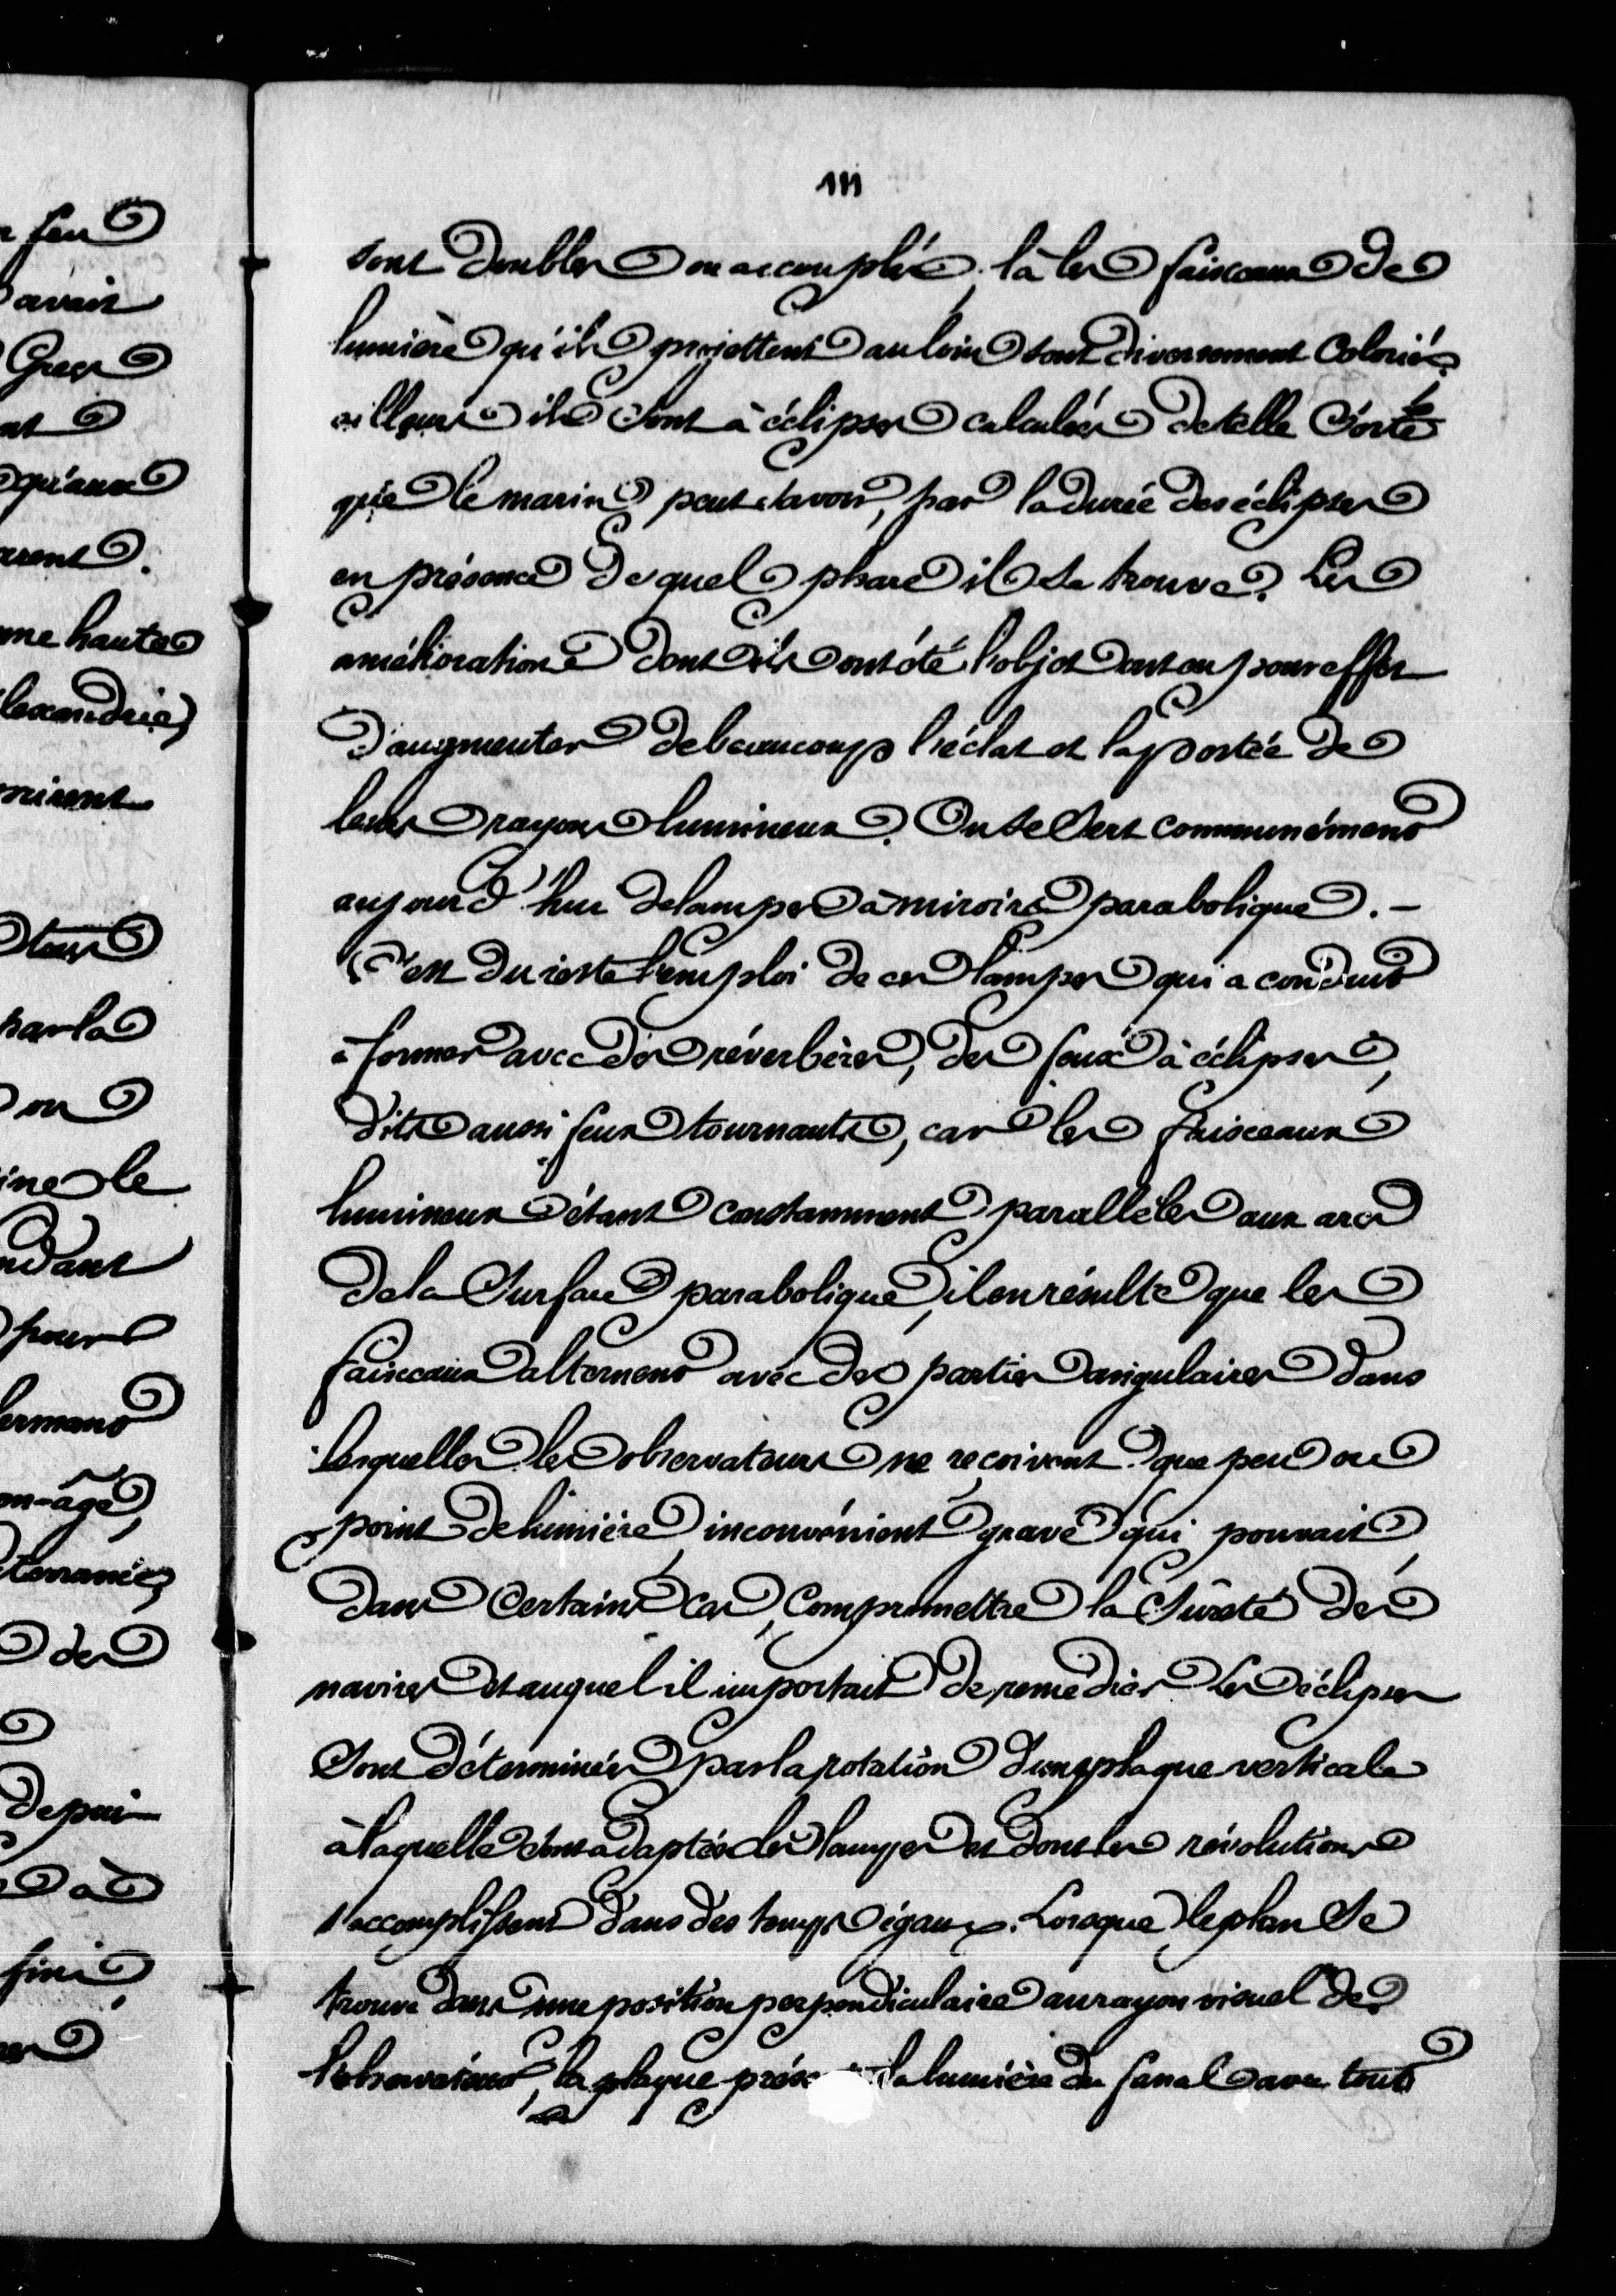 111
sont doubles ou accouplés; là les faisceaux de
lumière qu'ils projettent au loin sont diversement coloriés,
ailleurs ils sont à éclipses calculées de telle sorte
que le marin peut savoir, par la durée des éclipses
en présence de quel phare il se trouve. Les
améliorations dont ils ont été l'objet ont eu pour effet
d'augmenter de beaucoup l'éclat et la portée de
leurs rayons lumineux. On se sert communément
aujourd'hui de lampes à miroirs parabolique. –
C'est du reste l'emploi de ces lampes qui a conduit
à former avec des réverbères, des feux à éclipses,
dits aussi feux tournants, car les faisceaux
lumineux étant constamment parallèles aux arcs
de la surface parabolique, il en résulte que les
faisceaux alternent avec des parties angulaires dans
lesquelles les observateurs ne reçoivent que peu ou
point de lumière, inconvénient grave qui pouvait,
dans certains cas, compromettre la sûreté des
navires et auquel il importait de remédier. Les éclipses
sont déterminées par la rotation d'une plaque verticale
à laquelle sont adaptées les lampes et dont les révolutions
s'accomplissent dans des temps égaux. Lorsque le plan se
trouve dans une position perpendiculaire au rayon visuel de
l'observateur, la plaque la lumière du fanal avec tout
feu
avait
Grecs
qu'aux
haute
par la
ou
le
pour
des
depuis
à
fini